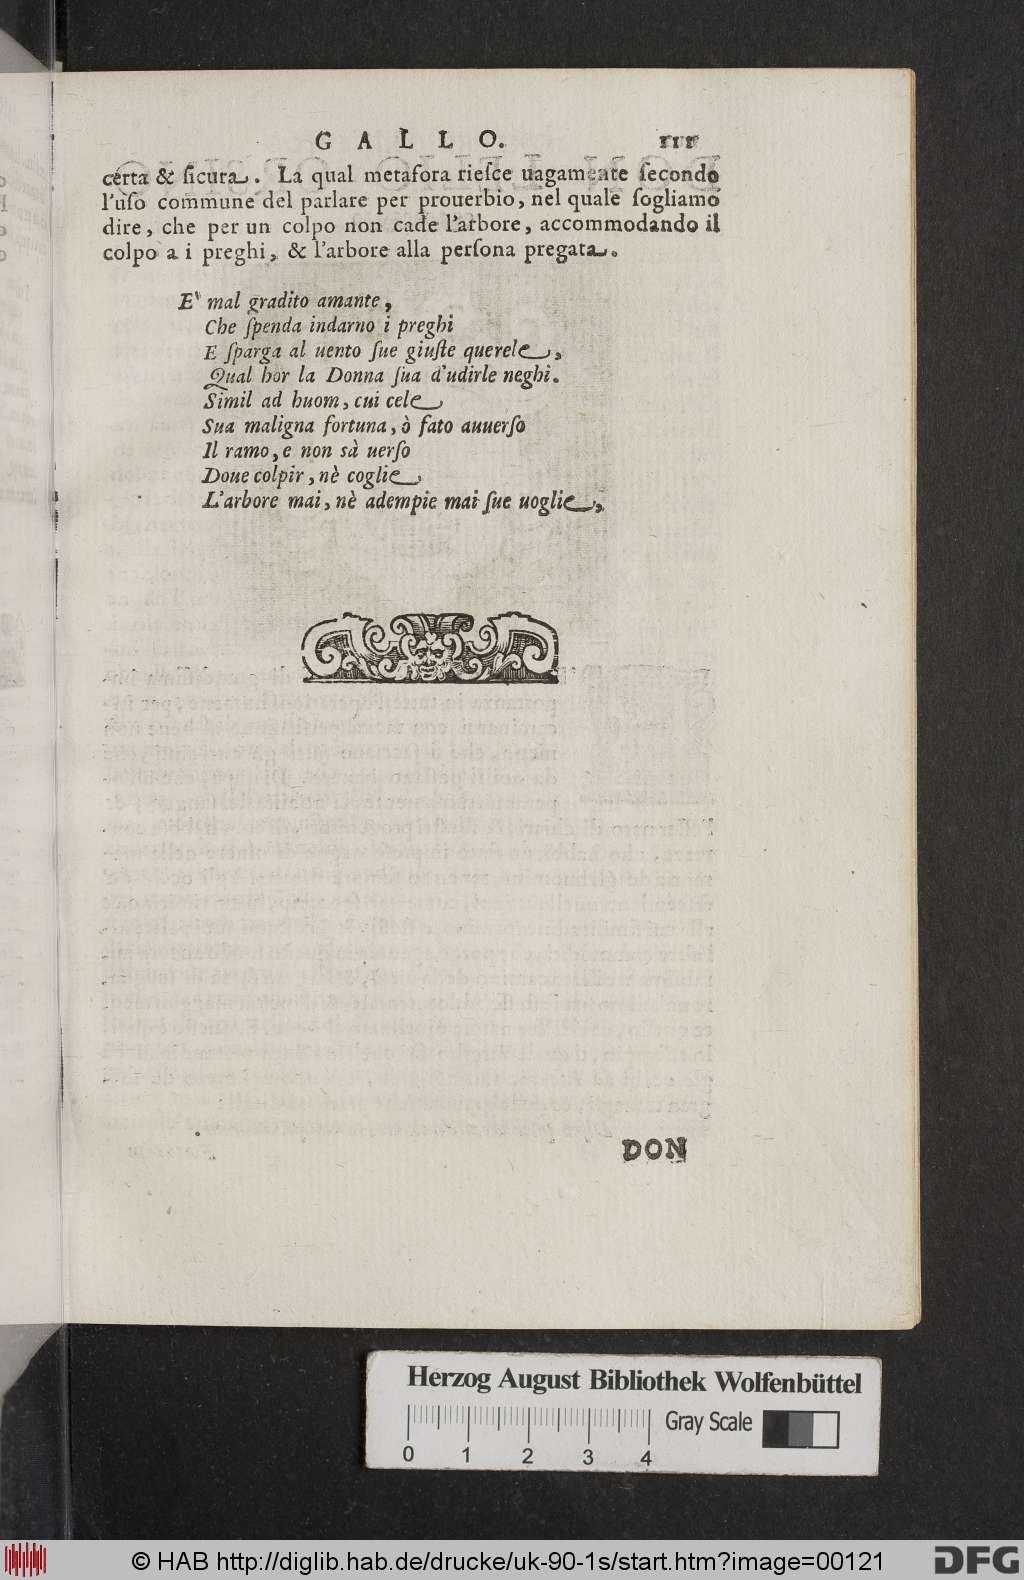 GALLO. 111
certa & ſicura. La qual metafora rieſce uagamente ſecondo
l'uſo commune del parlare per prouerbio, nel quale ſogliamo
dire, che per un colpo non cade l'arbore, accommodando il
colpo a i preghi, & l'arbore alla perſona pregata.
E' mal gradito amante,
Che ſpenda indarno i preghi
E ſparga al uento ſue giuſte querele,
Qual hor la Donna ſua d'udirle neghi.
Simil ad huom, cui cele
Sua maligna fortuna, ò fato auuerſo
Il ramo, e non sà uerſo
Doue colpir, nè coglie
L'arbore mai, nè adempie mai ſue uoglie,
DON
Herzog August Bibliothek Wolfenbüttel
Gray Scale
0 1 2 3 4
© HAB http://diglib.hab.de/drucke/uk-90-1s/start.htm?image=00121
DFG